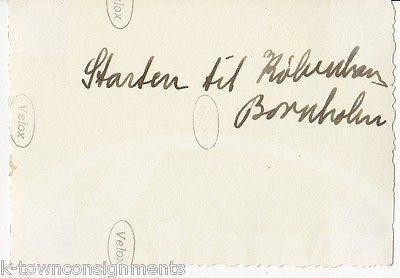 Velox
Starten til København
Bornholm
Velox
Velox
k-townconsignments